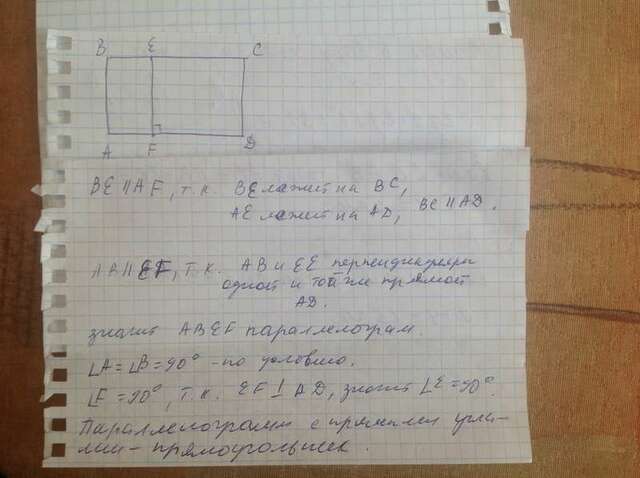 B E C
A F D
BE || AF, т.к. BE лежит на BC,
AE лежит на AD, BC || AD.
AB || EF, т.к. AB и EF перпендикуляры
одной и той же прямой
AD.
значит ABEF параллелограм.
∠A = ∠B = 90° - по условию.
∠F = 90°, т.к. EF ⊥ AD, значит ∠E = 90°.
Параллелограмм с прямыми угла-
ми - прямоугольник.